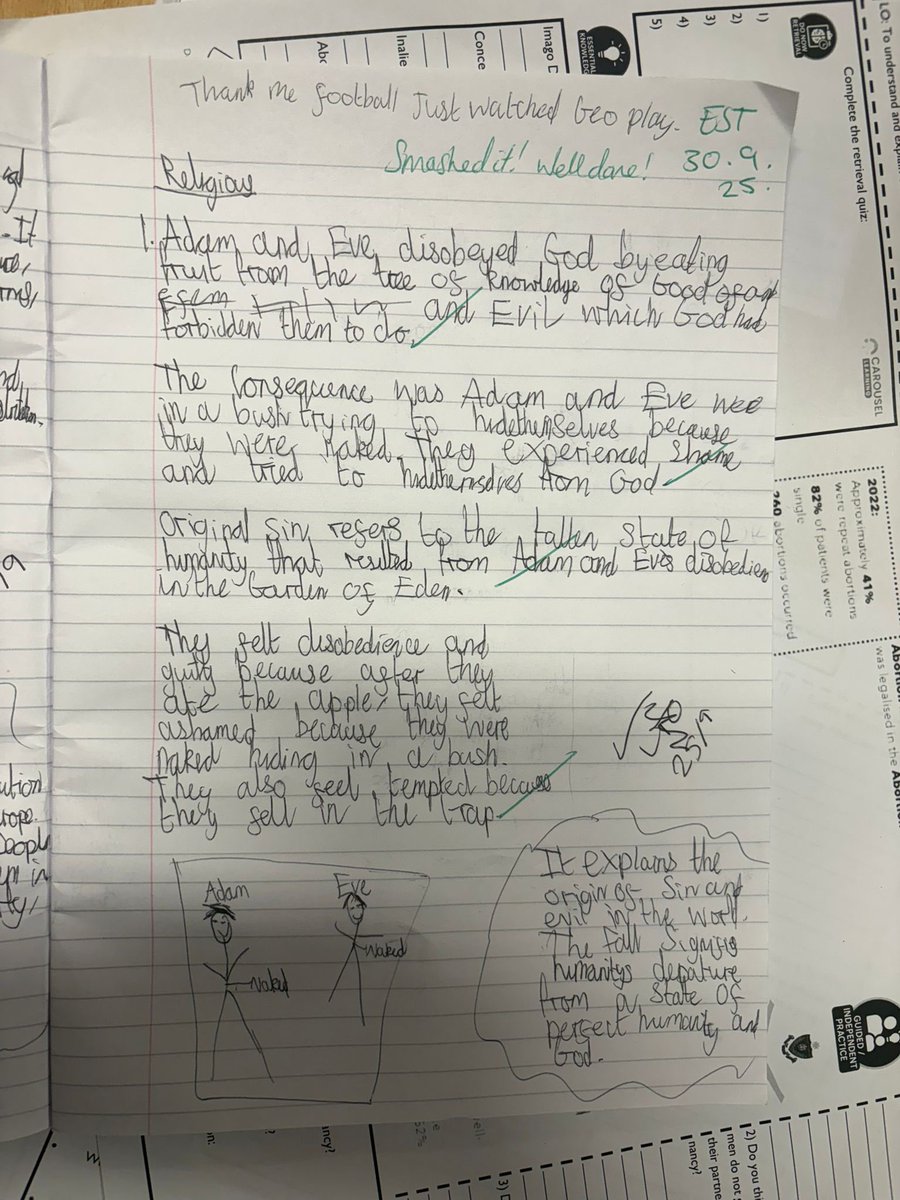 Thank me football Just watched Geo play. EST
Smashed it! Well done! 30.9.
25.
Religious
1. Adam and Eve disobeyed God by eating
fruit from the tree of knowledge of Good
and Evil which God had
forbidden them to do.
The Consequence was Adam and Eve wee
in a bush trying to hide themselves because
they were naked. They experienced Shame
and tried to hide themselves from God
Original Sin refers to the fallen State of
humanity that resulted from Adam and Eves disobedien
in the Garden of Eden.
They felt disobedience and
guity because after they
ate the apple they felt
ashamed because they were
naked hiding in a bush.
They also feel tempted because
they fell in the trap
Adam
Eve
Naked
Naked
It explains the
origin of Sin and
evil in the worl.
The Fall Signifis
humanitys depature
from a State of
perfect humanity and
God.
LO: To understand and explain
DO NOW
RETRIEVAL
Complete the retrieval quiz:
1)
2)
3)
4)
5)
CAROUSEL
LEARNING
ESSENTIAL
KNOWLEDGE
Imago D
Conce
Inalie
Abc
2022:
Approximately 41%
were repeat abortions
82% of patients were
single
260 abortions occurred
Abortion
was legalised in the Abortio
GUIDED /
INDEPENDENT
PRACTICE
2) Do you thi
men do not
their partne
nancy?